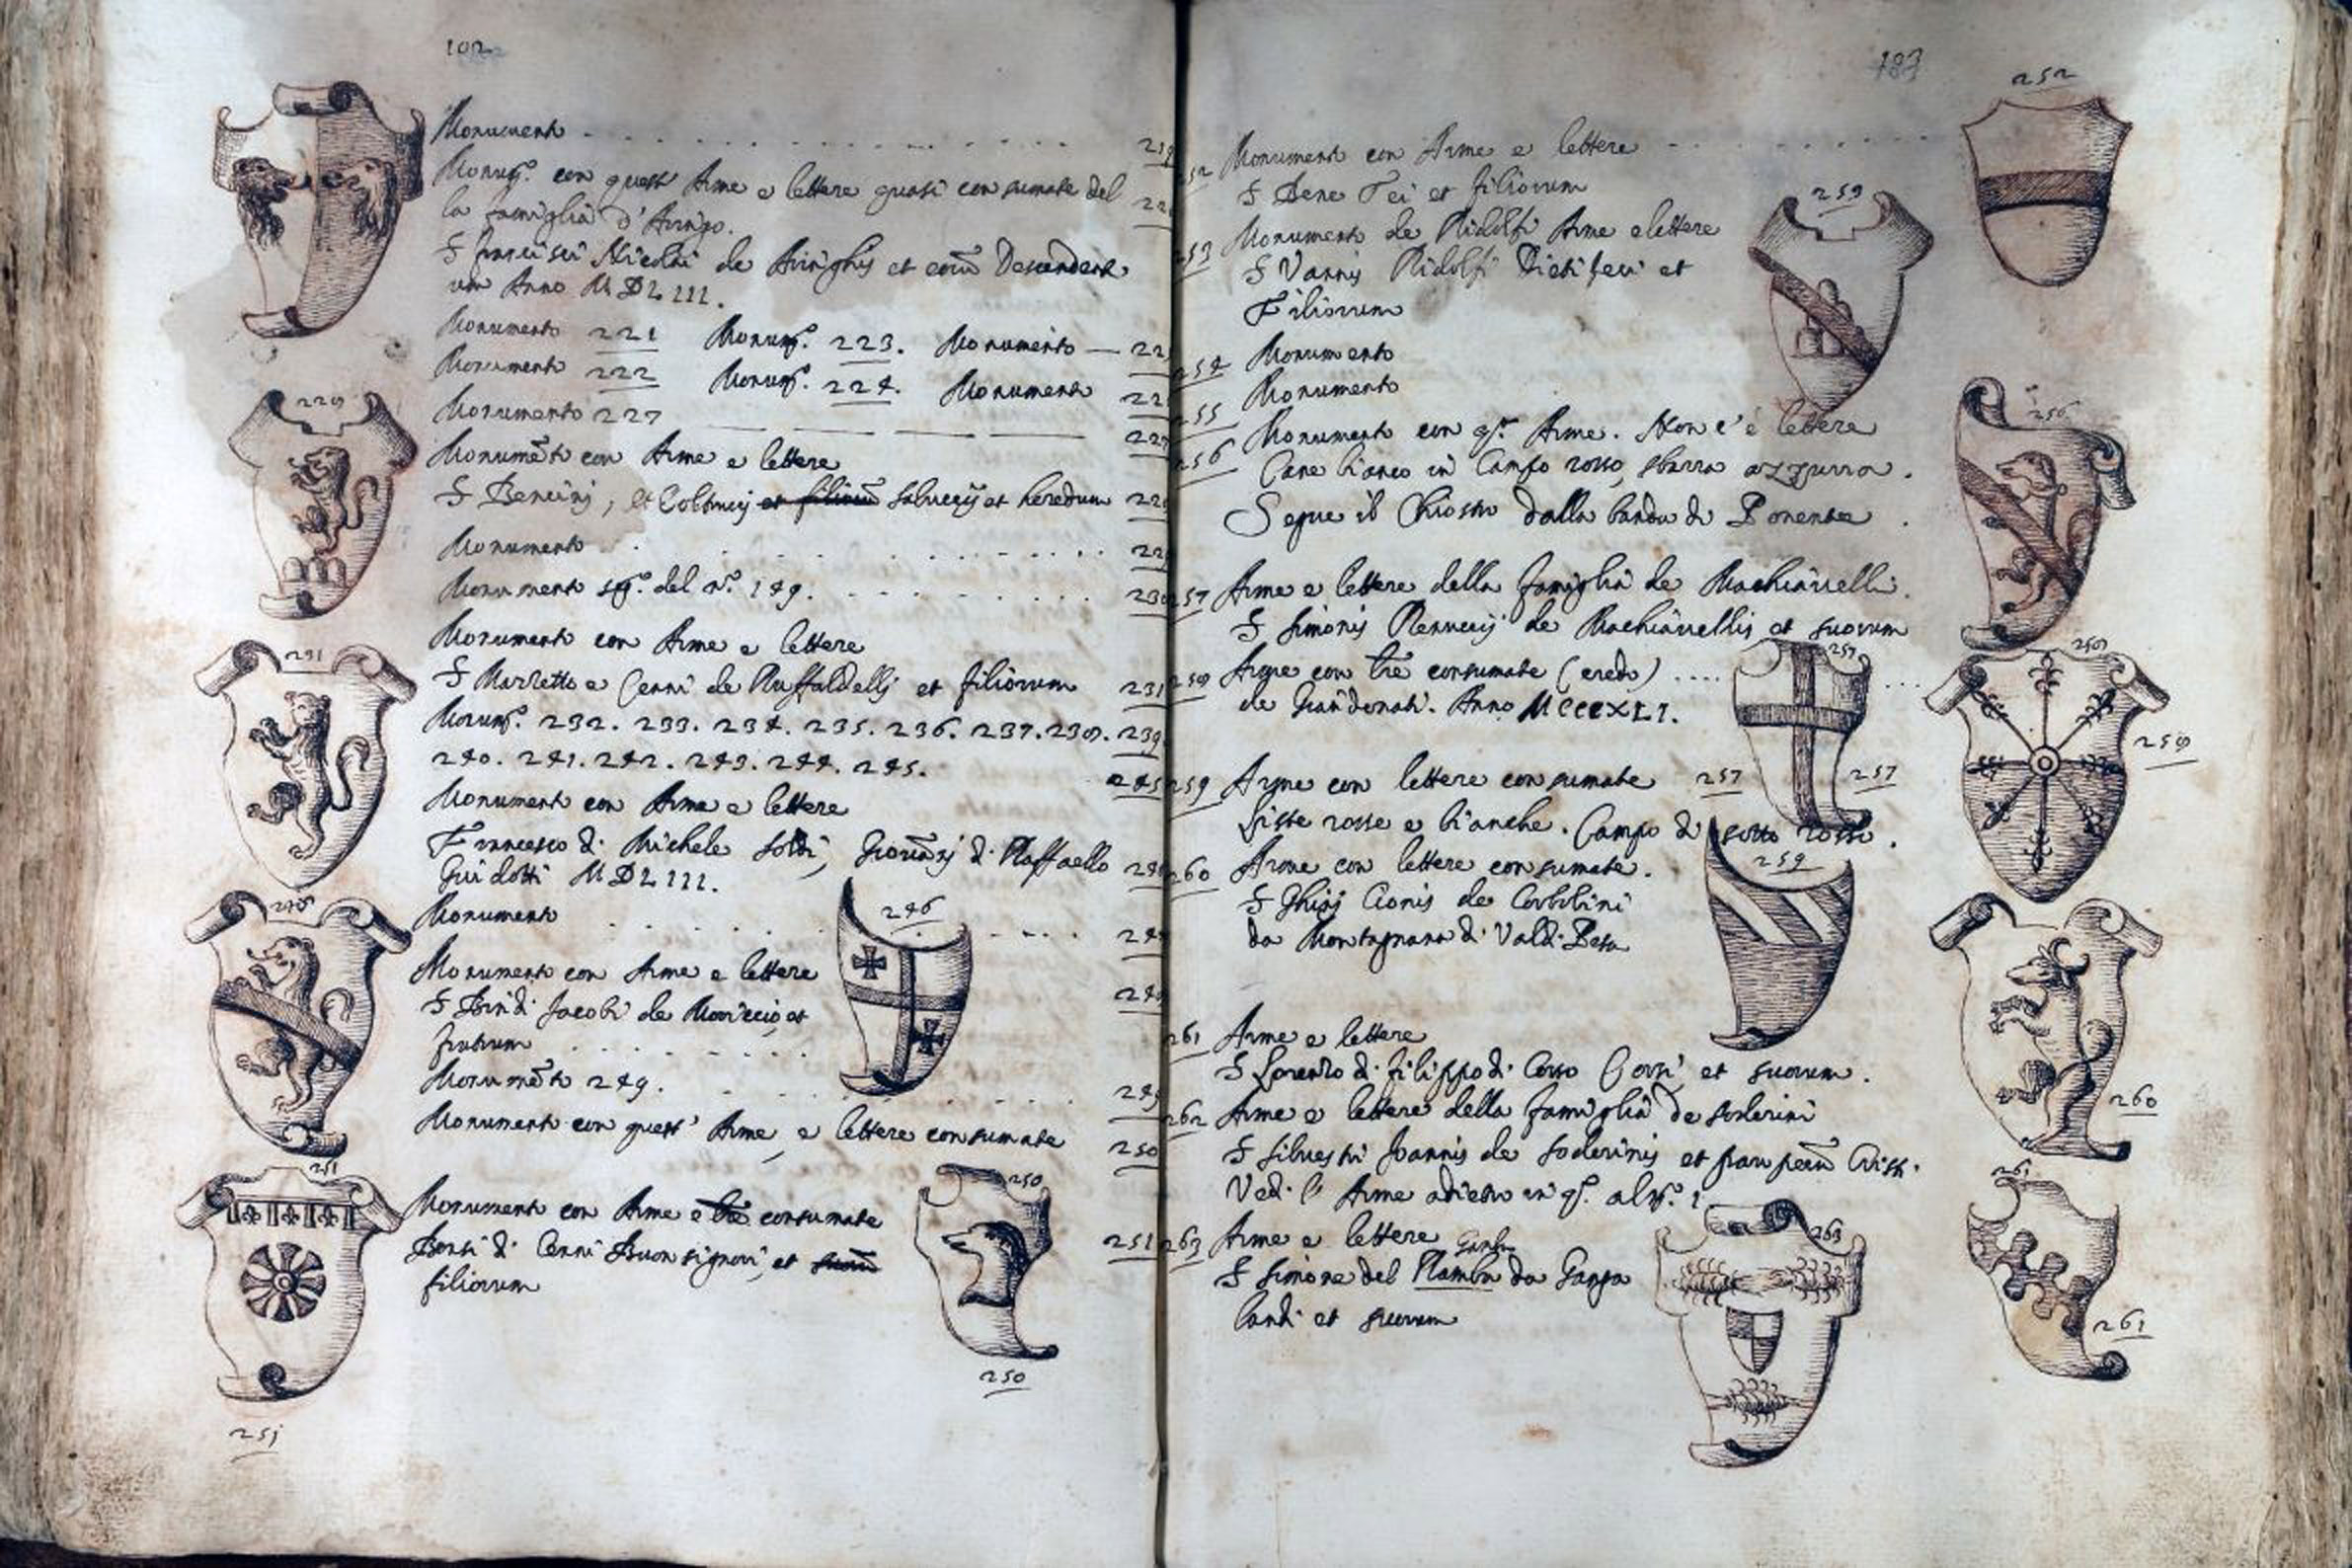 102
Monumento
Monum.to con quest' Arme e lettere quasi consumate del
la famiglia d'Arrigo.
S Francisci Nicolai de Arrighis et eorū Descendent
um Anno MDLIII.
Monumento 221 Monum.to 223. Monumento
Monumento 222 Monum.to 224. Monumento
Monumento 227 227
228
Monumēto con Arme e lettere
S Bencini, et et filiorū Salvucij et heredum
Monumento
Monumento del n.o 149. 230
231
Monumento con Arme e lettere
S Mazzetto e Cenni de Ruffaldelli et filiorum 231
Monum.ti 232. 233. 234. 235. 236. 237. 238. 239
240. 241. 242. 243. 244. 245. 245
Monumento con Arme e lettere
Francesco di Michele Soldi, Giovānj di Raffaello
Guidotti MDLIII.
Monumento
246
Monumento con Arme e lettere
S Bindi Jacobi de et
fratrum
Monumēto 249.
Monumento con quest' Arme, e lettere consumate 250
251
250
Monumento con Arme e lrē consumate
Borsi di Cenni Buonsignori, et suorū 251
filiorum
250
251
103
252
252 Monumento con Arme e lettere
S Bene Tei et filiorum
259
253 Monumento de Ridolfi Arme e lettere
S Vannis Ridolfi et
Filiorum
254 Monumento
255 Monumento
256
256 Monumento con q.sta Arme. Non c'è lettere
Cane bianco in Campo rosso, sbarra azzurra.
Segue il Chiostro dalla banda di Ponente.
257 Arme e lettere della famiglia de Machiavelli.
S Simonis Rennccij de Machiavellis et suorum
257
258
258 Arme con lrē consumate (credo)
de Giandonati. Anno MCCCXLI.
258
259 Arme con lettere consumate 257 257
Liste rosse e bianche. Campo di sotto rosso.
259
260 Arme con lettere consumate.
S Ghini Cionis de
da Montagnana di Valdi Pesa
261 Arme e lettere
S Lorenzo di Filippo di Corso Corsi et suorum.
260
262 Arme e lettere della famiglia de Soderini
S Silvestri Joannis de Soderinis et pauperū Cristi.
Vedi l'Arme adietro in q.sto al n.o 1
261
263 Arme e lettere
263
S Simone del da Ganga
landi et suorum
261